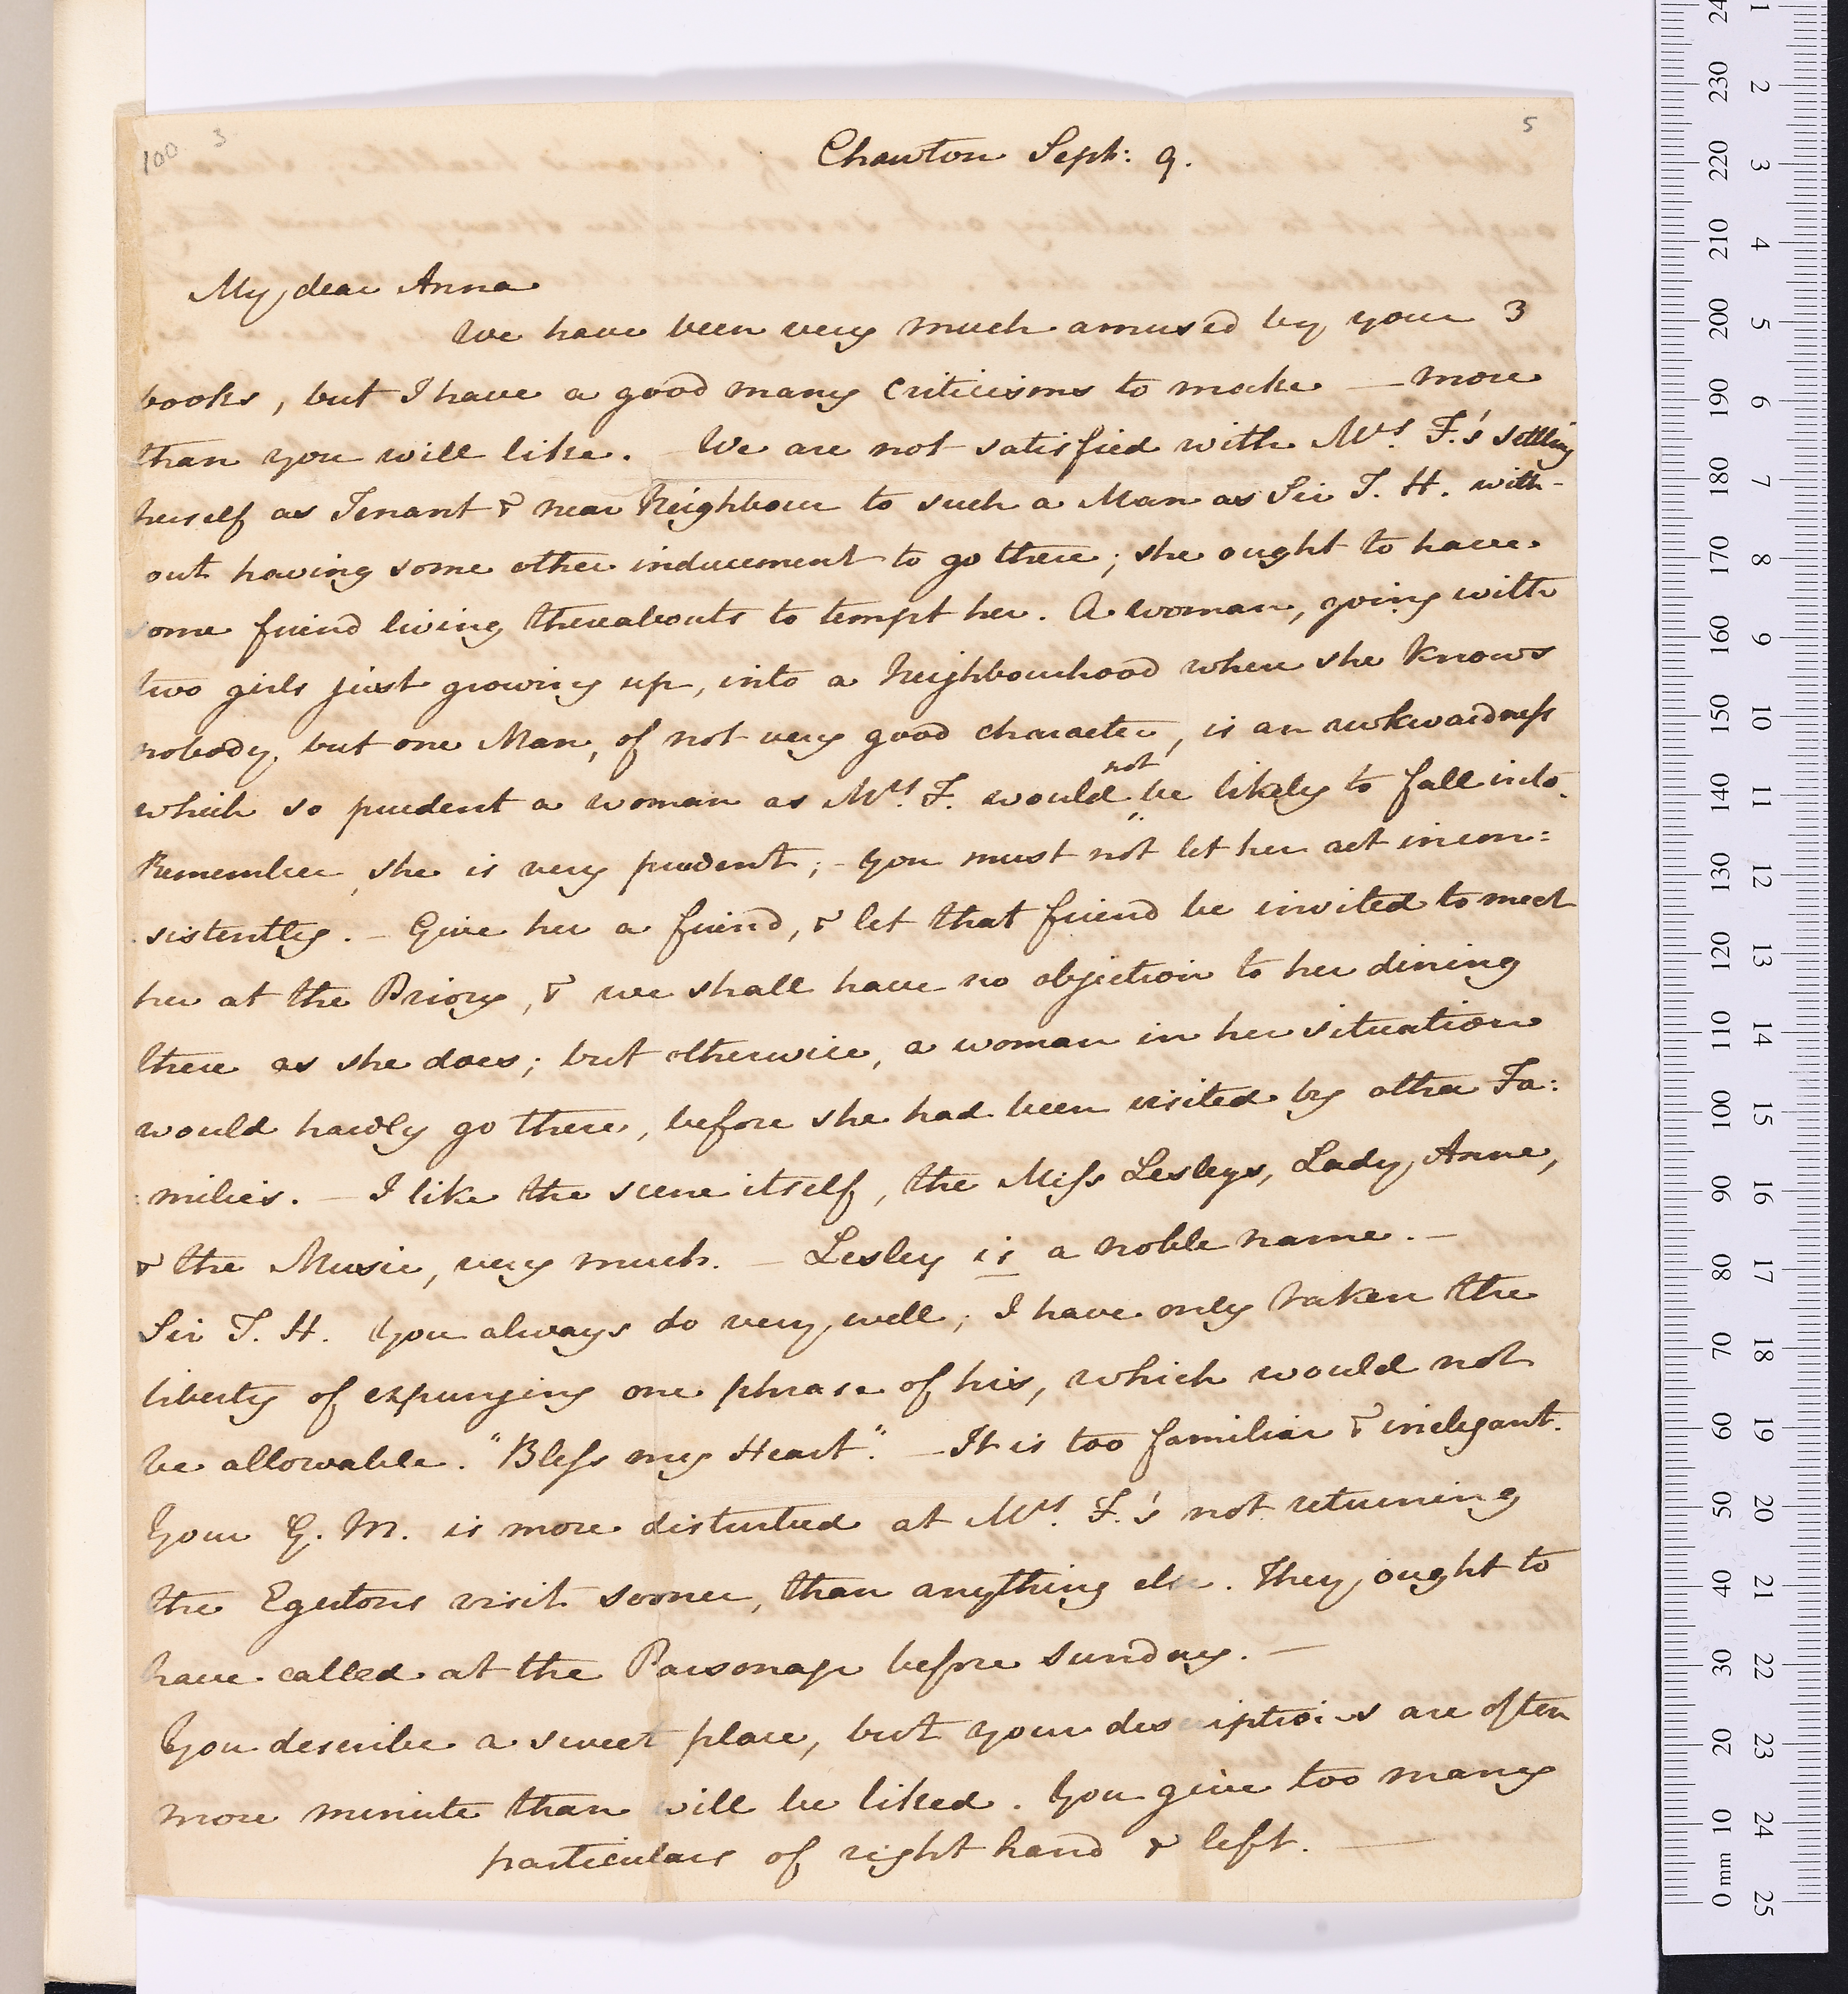 100 3 5
Chawton Sept: 9.
My dear Anna
We have been very much amused by your 3
books, but I have a good many criticisms to make — more
than you will like. — We are not satisfied with Mrs. F.'s settling
herself as Tenant & near Neighbour to such a Man as Sir T. H. with-
out having some other inducement to go there; she ought to have
some friend living thereabouts to tempt her. A woman, going with
two girls just growing up, into a Neighbourhood where she knows
nobody but one Man, of not very good character, is an awkwardness
which so prudent a woman as Mrs. F. would not be likely to fall into.
Remember, she is very prudent; — you must not let her act incon:
:sistently. — Give her a friend, & let that friend be invited to meet
her at the Priory, & we shall have no objection to her dining
there as she does; but otherwise, a woman in her situation
would hardly go there, before she had been visited by other Fa:
:milies. — I like the scene itself, the Miss Lesleys, Lady Anne,
& the Music, very much. — Lesley is a noble name. —
Sir T. H. you always do very well; I have only taken the
liberty of expunging one phrase of his, which would not
be allowable. "Bless my Heart". — It is too familiar & inelegant.
Your G. M. is more disturbed at Mrs. F.'s not returning
the Egertons visit sooner, than anything else. They ought to
have called at the Parsonage before Sunday. —
You describe a sweet place, but your descriptions are often
more minute than will be liked. You give too many
particulars of right hand & left. —
240 230 220 210 200 190 180 170 160 150 140 130 120 110 100 90 80 70 60 50 40 30 20 10 0 mm
1 2 3 4 5 6 7 8 9 10 11 12 13 14 15 16 17 18 19 20 21 22 23 24 25